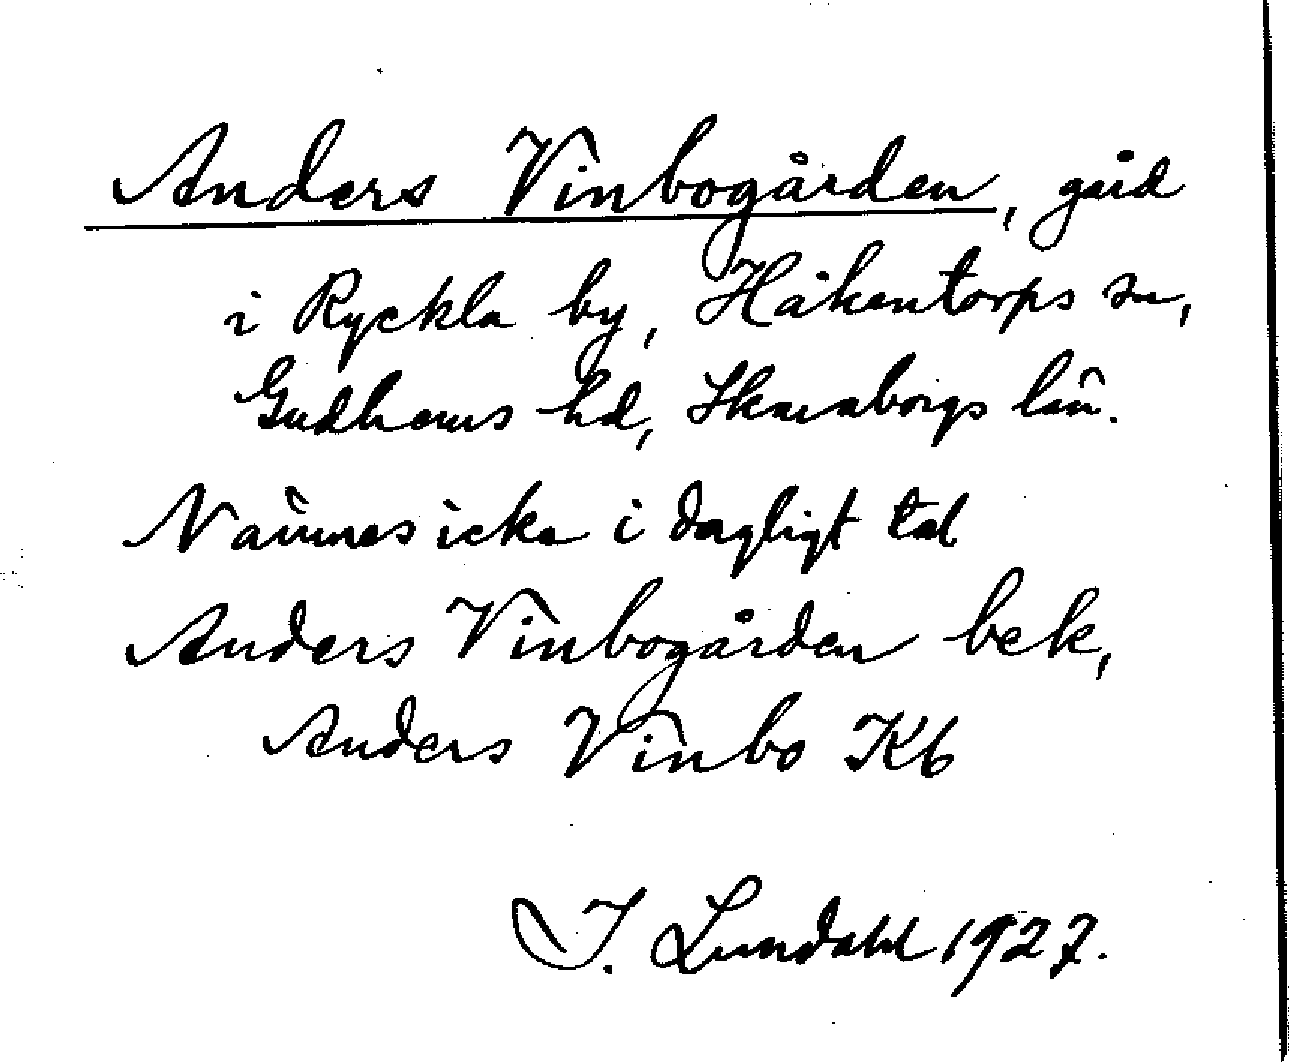 Anders Vinbogården, gård
i Ryckla by, Håkentorps sn,
Gudhems hd, Skaraborgs län.
Nämnes icke i dagligt tal
Anders Vinbogården bek,
Anders Vinbo Kb
I. Lundahl 1927.